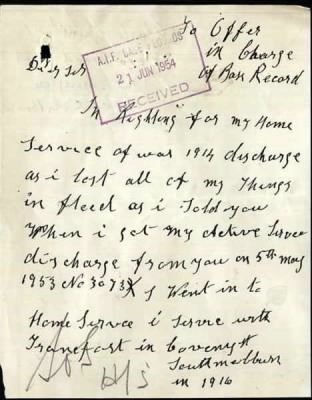 To Offer
in Charge
of Base Record
Dear Sir
A.I.F. BASE RECORDS
21 JUN 1954
RECEIVED
I'm Righting for my Home
Service of war 1914 discharge
as i lost all of my Things
in flood as i Told you
When i get my Active Service
discharge from you on 5th may
1953 No 3073 I Went in to
Home Service i Serve with
Transport in
South melburn
in 1916